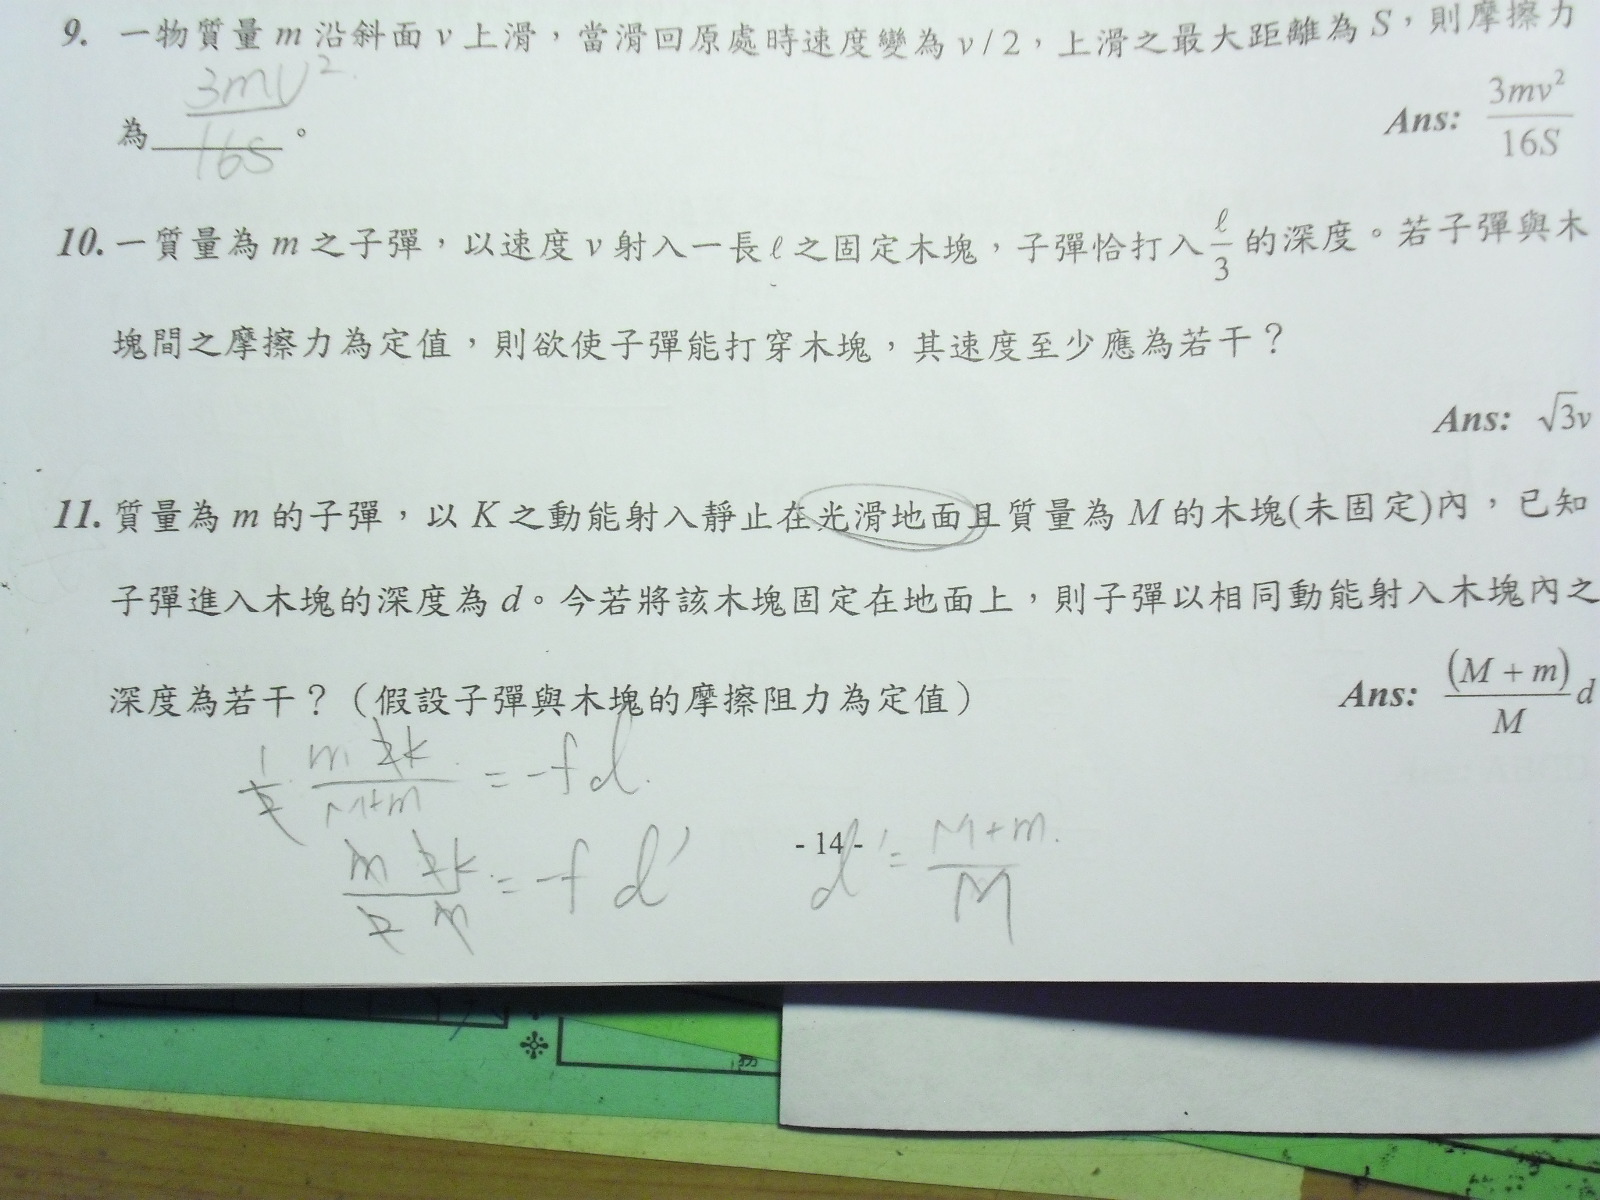 9. 一物質量 m 沿斜面 v 上滑，當滑回原處時速度變為 v / 2，上滑之最大距離為 S，則摩擦力
為 3mv²/16S 。 Ans: 3mv²/16S
10. 一質量為 m 之子彈，以速度 v 射入一長 ℓ 之固定木塊，子彈恰打入 ℓ/3 的深度。若子彈與木
塊間之摩擦力為定值，則欲使子彈能打穿木塊，其速度至少應為若干？
Ans: √3v
11. 質量為 m 的子彈，以 K 之動能射入靜止在光滑地面且質量為 M 的木塊(未固定)內，已知
子彈進入木塊的深度為 d。今若將該木塊固定在地面上，則子彈以相同動能射入木塊內之
深度為若干？（假設子彈與木塊的摩擦阻力為定值） Ans: (M + m)/M d
1/2 m 2k/M+m = -fd.
m 2k/2 m = -f d'
- 14 -
d' = M+m/M